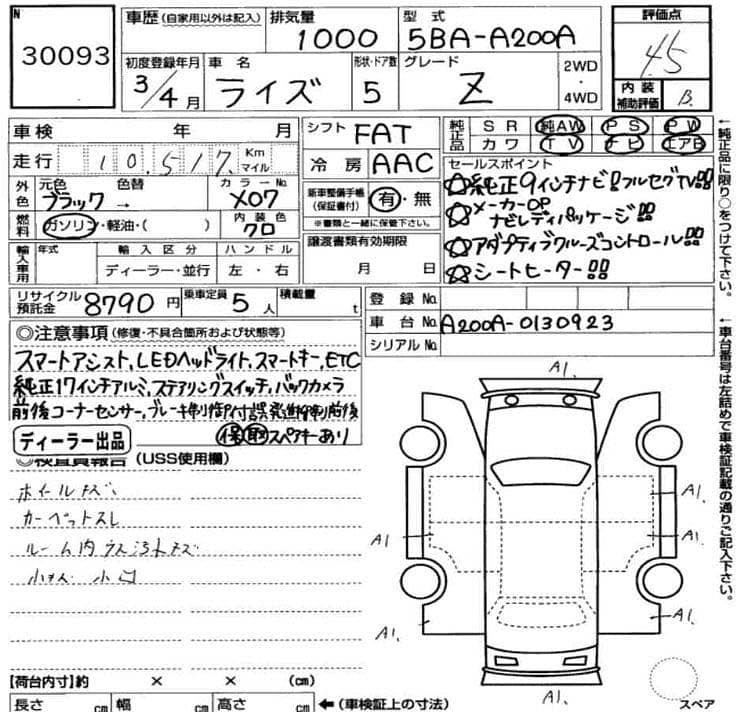 N
30093
車歴(自家用以外は記入)
排気量
1000
型式
5BA-A200A
評価点
4.5
内装
補助評価
B.
初度登録年月
3/4月
車名
ライズ
形状・ドア数
5
グレード
Z
2WD
・
4WD
車検 年 月
シフト FAT
純正品
SR 純AW PS PW
カワ TV ナビ エアB
走行 10,517. Km
マイル
冷房 AAC
セールスポイント
☆純正9インチナビ!!フルセグTV!!
☆メーカーOP
ナビレディパッケージ!!
☆アダプティブクルーズコントロール!!
☆シートヒーター!!
外色
元色 色替
ブラック →
カラーNo.
X07
新車整備手帳
(保証書付)
有・無
※書類と一緒に保管下さい。
燃料
ガソリン・軽油・( )
内装色
クロ
輸入車用
年式
輸入区分
ハンドル
ディーラー・並行
左・右
譲渡書類有効期限
月 日
リサイクル
預託金
8790円
乗車定員
5人
積載量
t
登録No.
車台No. A200A-0130923
シリアルNo.
◎注意事項(修復・不具合箇所および状態等)
スマートアシスト、LEDヘッドライト、スマートキー、ETC
純正17インチアルミ、ステアリングスイッチ、バックカメラ
前後コーナーセンサー、ブレーキ制御付誤発進抑制前後
保 取 スペアキーあり
ディーラー出品
◎検査員報告(USS使用欄)
ホイールキズ
カーペットスレ
ルーム内ウス汚レキズ
小キズ 小凹
A1.
A1.
A1
A1.
A1.
A1.
A1.
A1.
スペア
【荷台内寸】約 × × (cm)
長さ cm 幅 cm 高さ cm
←(車検証上の寸法)
←純正品に限り○をつけて下さい。
←車台番号は左詰めで車検証記載の通りご記入下さい。